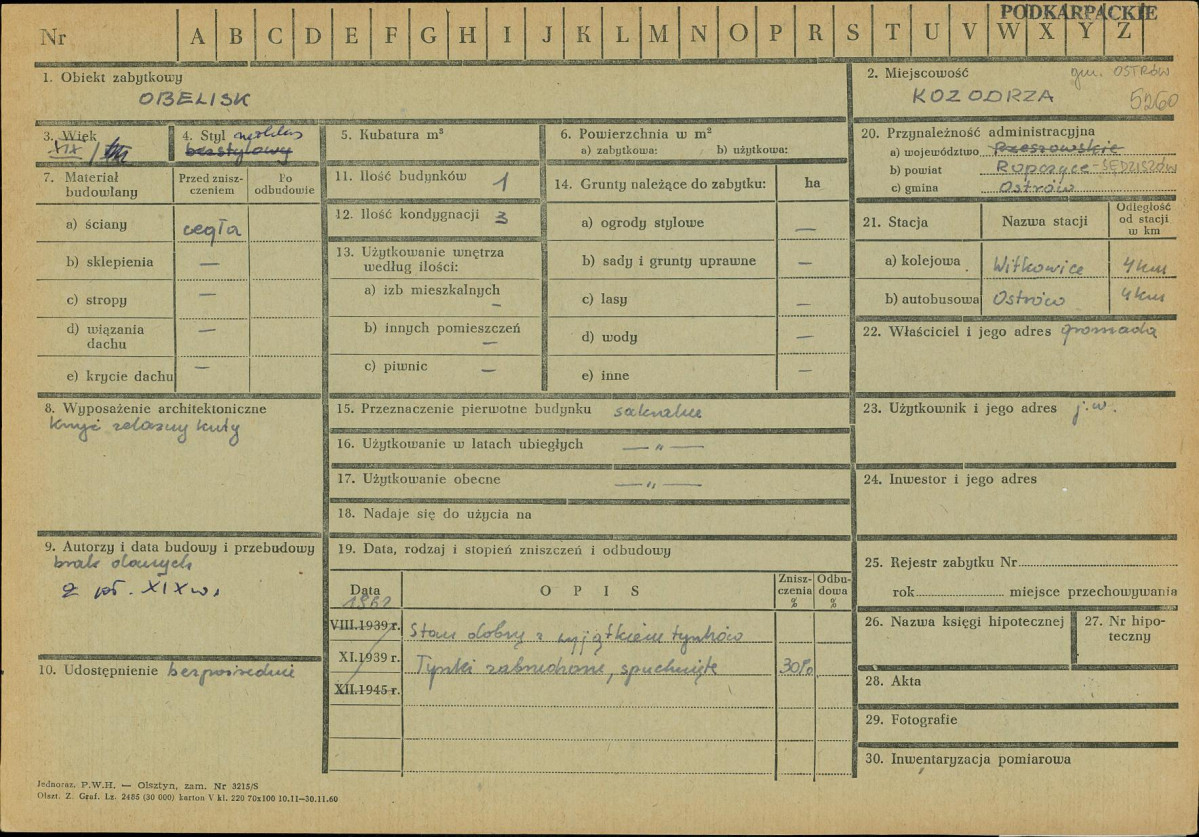 PODKARPACKIE
Nr A B C D E F G H I J K L M N O P R S T U V W X Y Z
1. Obiekt zabytkowy
OBELISK
2. Miejscowość gm. OSTRÓW
KOZODRZA 5260
3. Wiek
XIX
4. Styl
bezstylowy
5. Kubatura m³
6. Powierzchnia w m²
a) zabytkowa: b) użytkowa:
7. Materiał budowlany
Przed zniszczeniem
Po odbudowie
a) ściany cegła
b) sklepienia —
c) stropy —
d) wiązania dachu —
e) krycie dachu —
8. Wyposażenie architektoniczne
krzyż żelazny kuty
9. Autorzy i data budowy i przebudowy
brak danych
2 poł. XIX w.
10. Udostępnienie bezpośrednie
11. Ilość budynków 1
12. Ilość kondygnacji 3
13. Użytkowanie wnętrza według ilości:
a) izb mieszkalnych —
b) innych pomieszczeń —
c) piwnic —
14. Grunty należące do zabytku: ha
a) ogrody stylowe —
b) sady i grunty uprawne —
c) lasy —
d) wody —
e) inne —
15. Przeznaczenie pierwotne budynku sakralne
16. Użytkowanie w latach ubiegłych — „ —
17. Użytkowanie obecne — „ —
18. Nadaje się do użycia na
19. Data, rodzaj i stopień zniszczeń i odbudowy
Data OPIS Zniszczenia % Odbudowa %
1962
VIII.1939 r. Stan dobry z wyjątkiem tynków
XI.1939 r. Tynki zabrudzone, spuchnięte 30%
XII.1945 r.
20. Przynależność administracyjna
a) województwo Rzeszowskie
b) powiat Ropczyce-SĘDZISZÓW
c) gmina Ostrów
21. Stacja Nazwa stacji Odległość od stacji w km
a) kolejowa Witkowice 4 km
b) autobusowa Ostrów 4 km
22. Właściciel i jego adres gromada
23. Użytkownik i jego adres j.w.
24. Inwestor i jego adres
25. Rejestr zabytku Nr
rok miejsce przechowywania
26. Nazwa księgi hipotecznej
27. Nr hipoteczny
28. Akta
29. Fotografie
30. Inwentaryzacja pomiarowa
Jednoraz. P.W.H. — Olsztyn, zam. Nr 3215/S
Olszt. Z. Graf. Lz. 2485 (30 000) karton V kl. 220 70x100 10.11—30.11.60